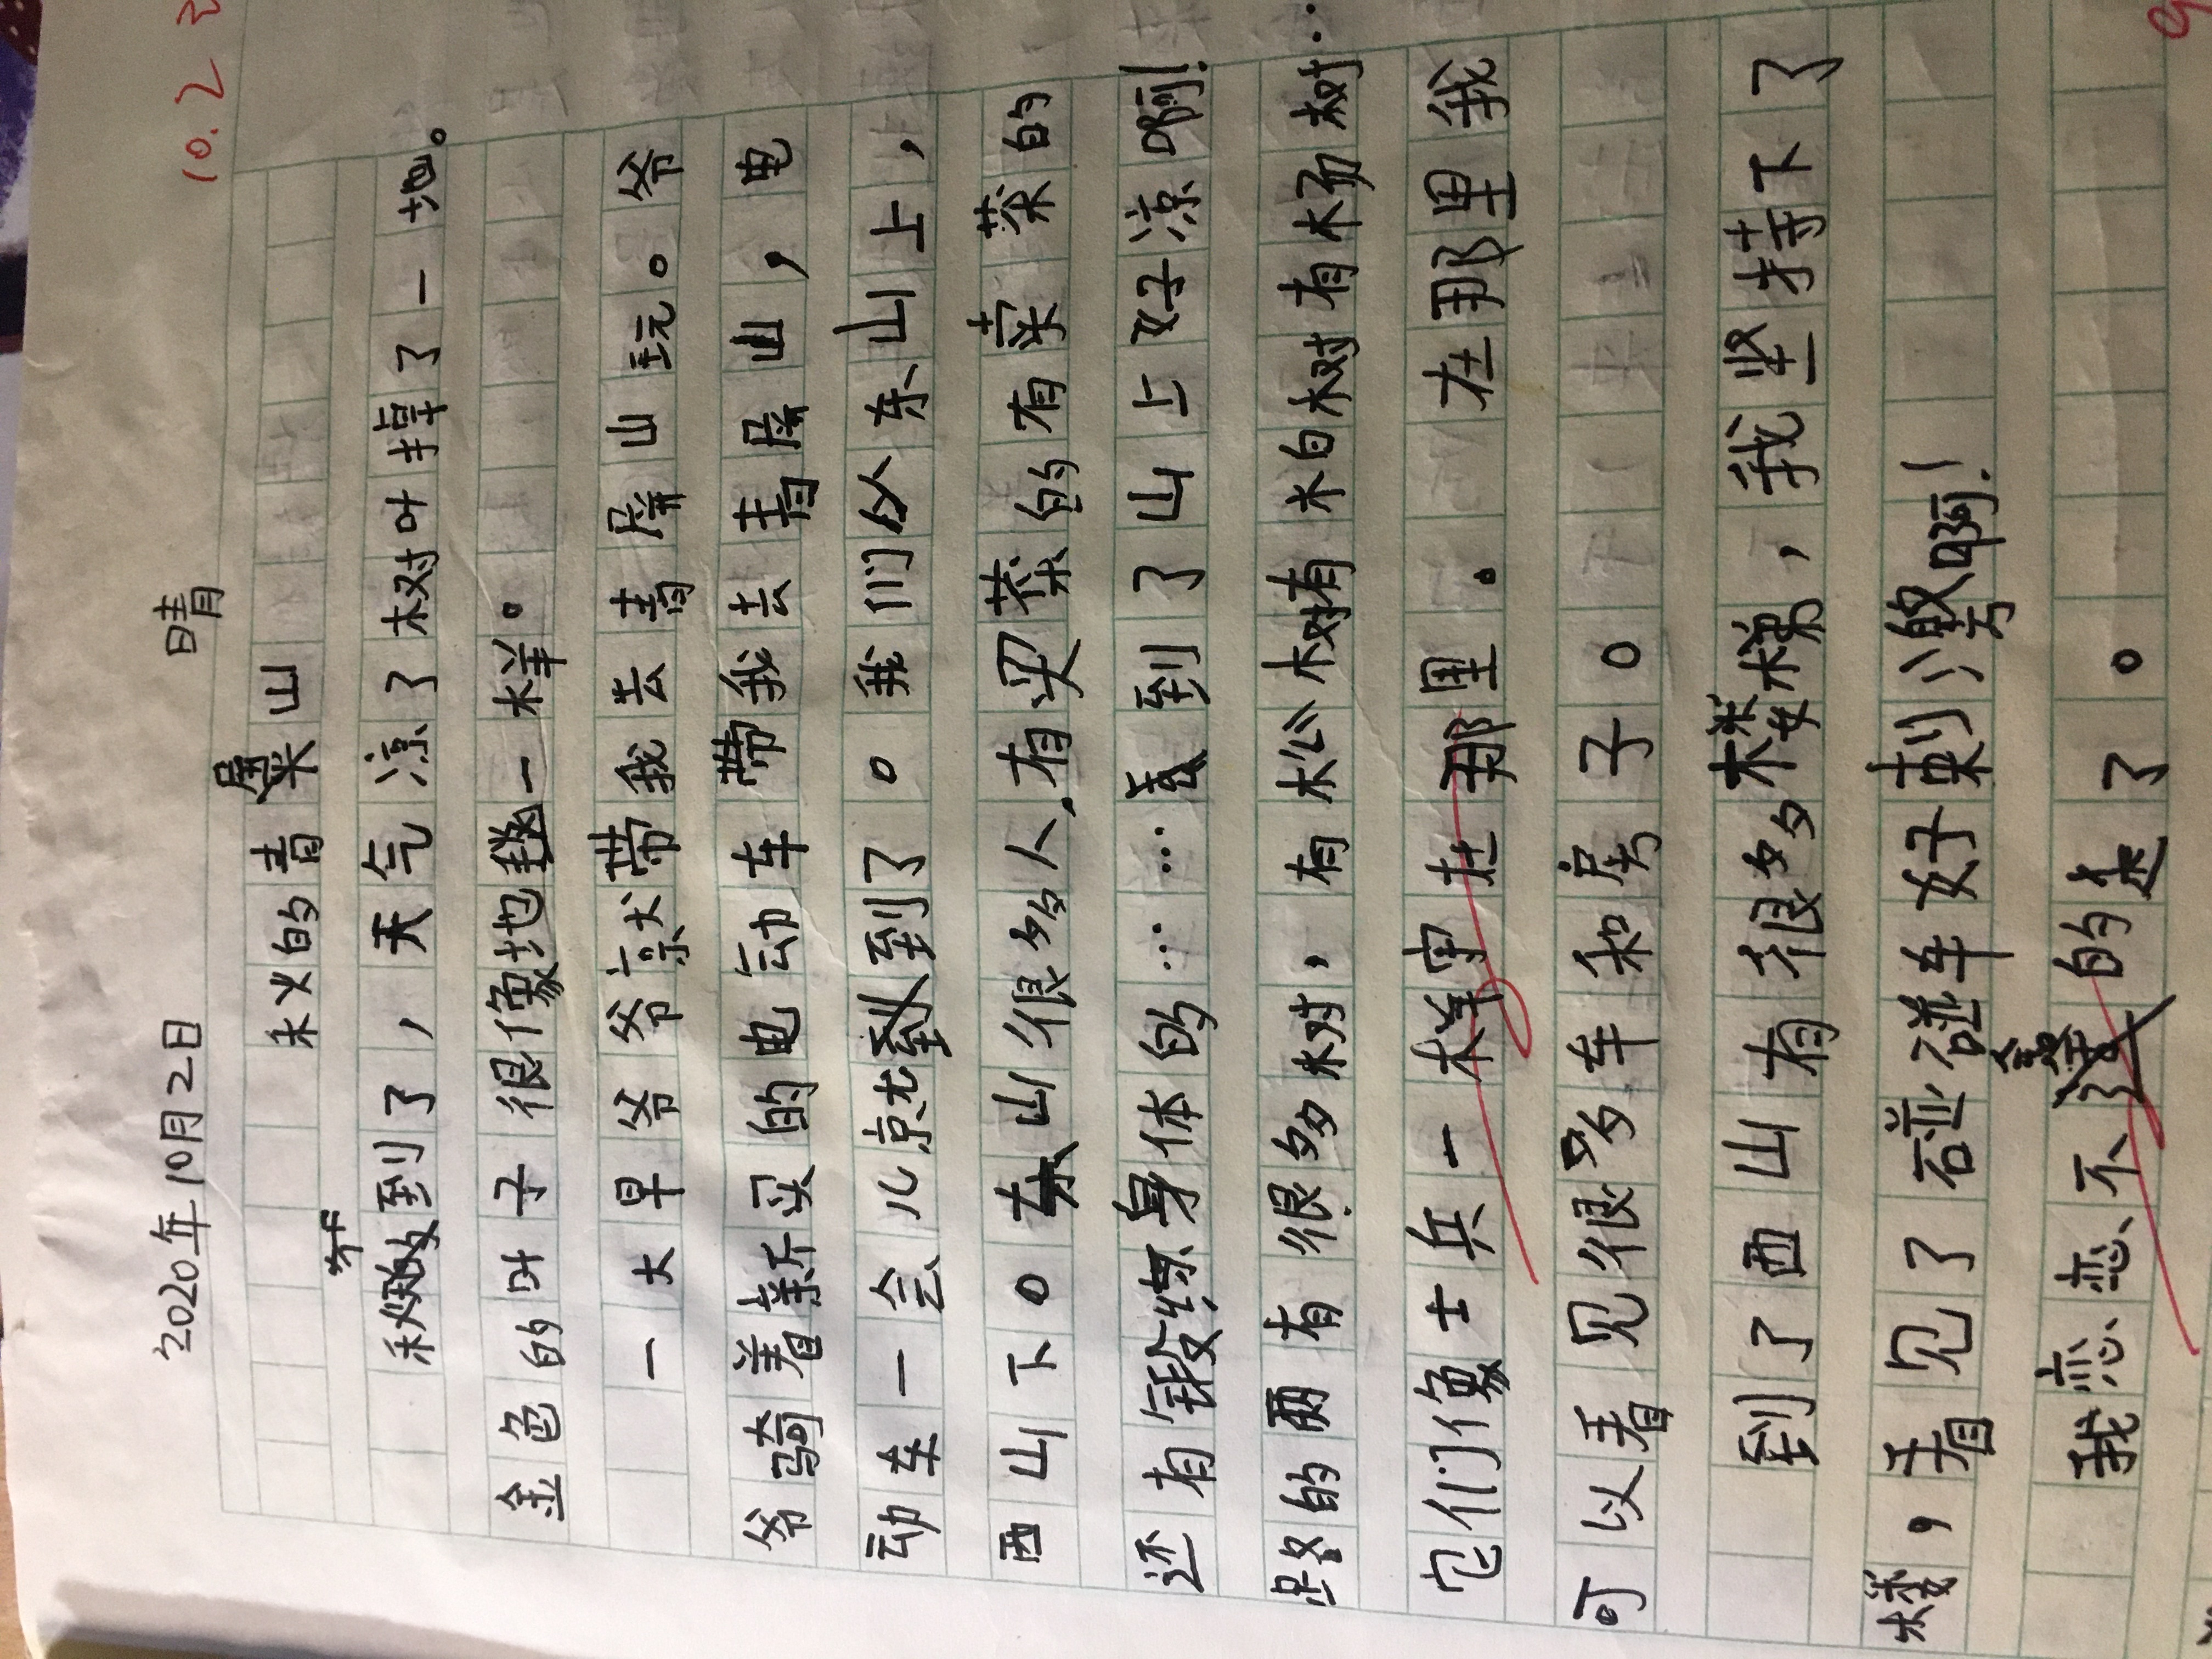 10.2
2020年10月2日 晴
秋的青屏山
秋天到了，天气凉了树叶掉了一地。
金色的叶子很像地毯一样。
一大早爷爷就带我去青屏山玩。爷
爷骑着新买的电动车带我去青屏山，电
动车一会儿就到了。我们从东山上，
西山下。东山很多人，有买菜的有卖菜的
还有锻练身体的……到了山上好凉啊!
路的两有很多树，有松树有木白树有杨树…
它们像士兵一样守在那里。在那里我
可以看见很多车和房子。
到了西山有很多楼梯，我坚持下了
楼，看见了碰碰车好刺激啊!
我恋恋不舍的走了。